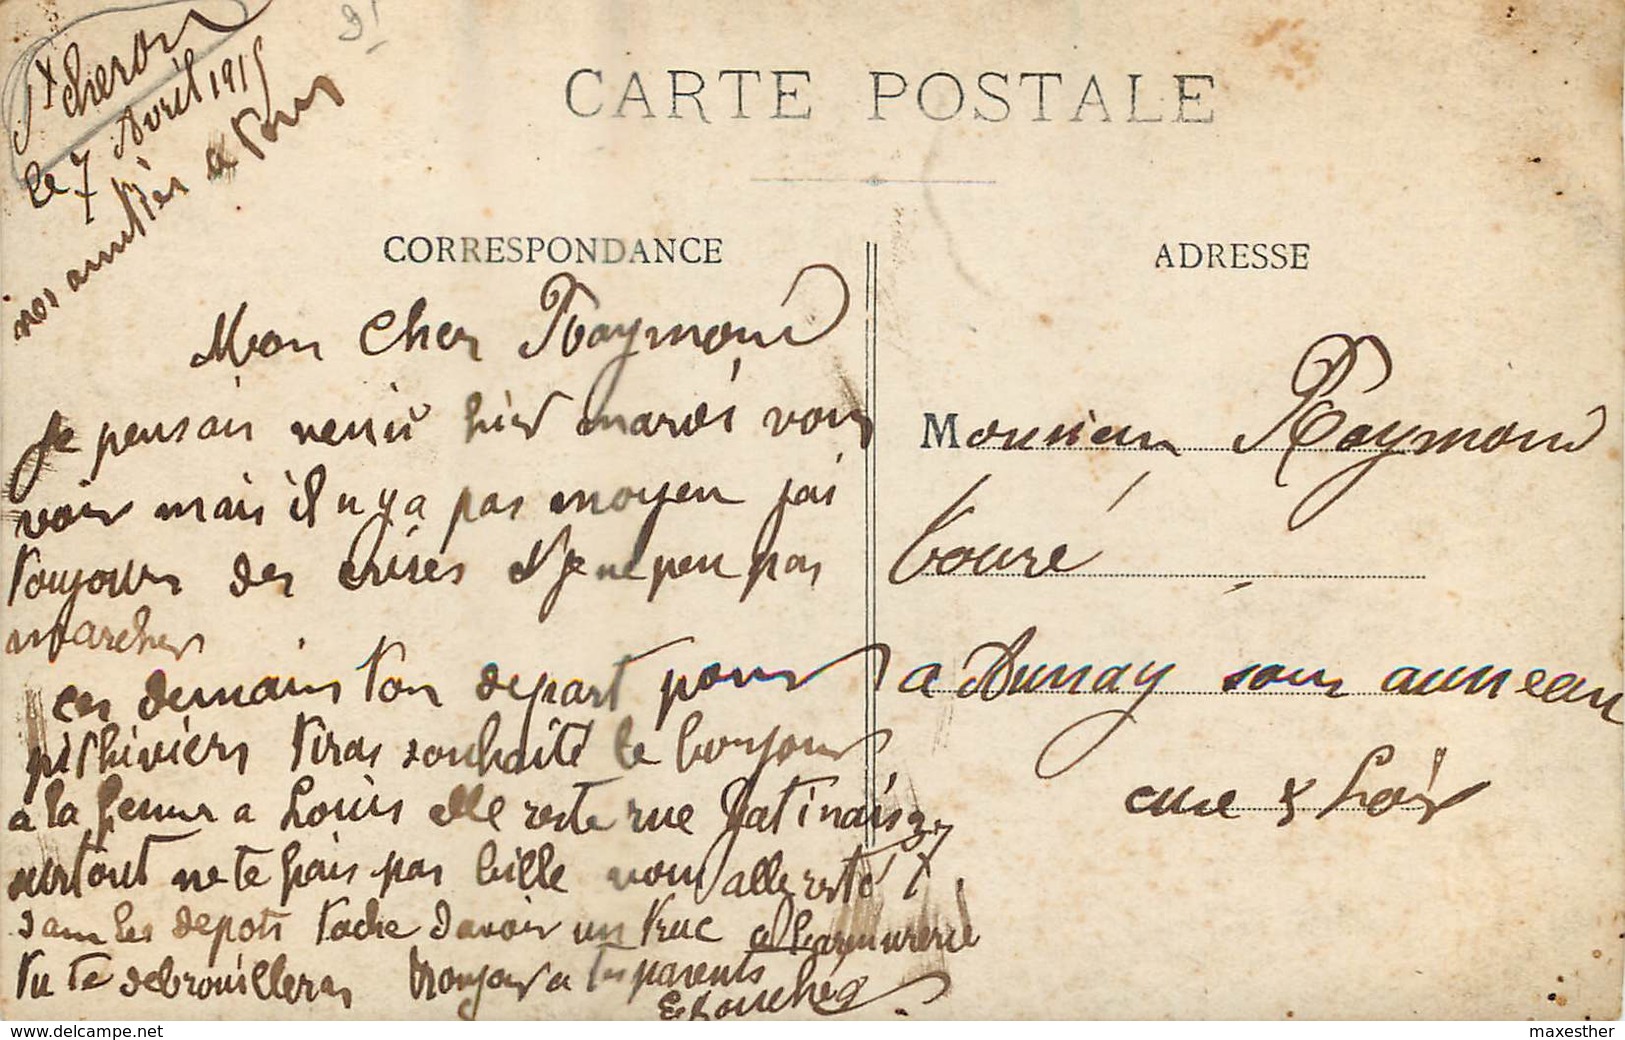 St Cheron
le 7 Avril 1915
nos amitiés a tous
CARTE POSTALE
CORRESPONDANCE
ADRESSE
Mon Cher Raymond
Je pensais venir hier mardi vous
voir mais il n y a pas moyen jai
toujours des crises et je ne peu pas
marcher
ces demain ton depart pour
pithiviers tiras souhaité le bonjour
a la femme a Louis elle reste rue Gatinais 37
surtout ne te fais pas bille vous alle resté
dans les depots tache davoir un truc a larmurerie
tu te debrouilleras bonjour a tes parents
Monsieur Raymond
Touré
a Aunay sous auneau
eure & Loir
maxesther
www.delcampe.net